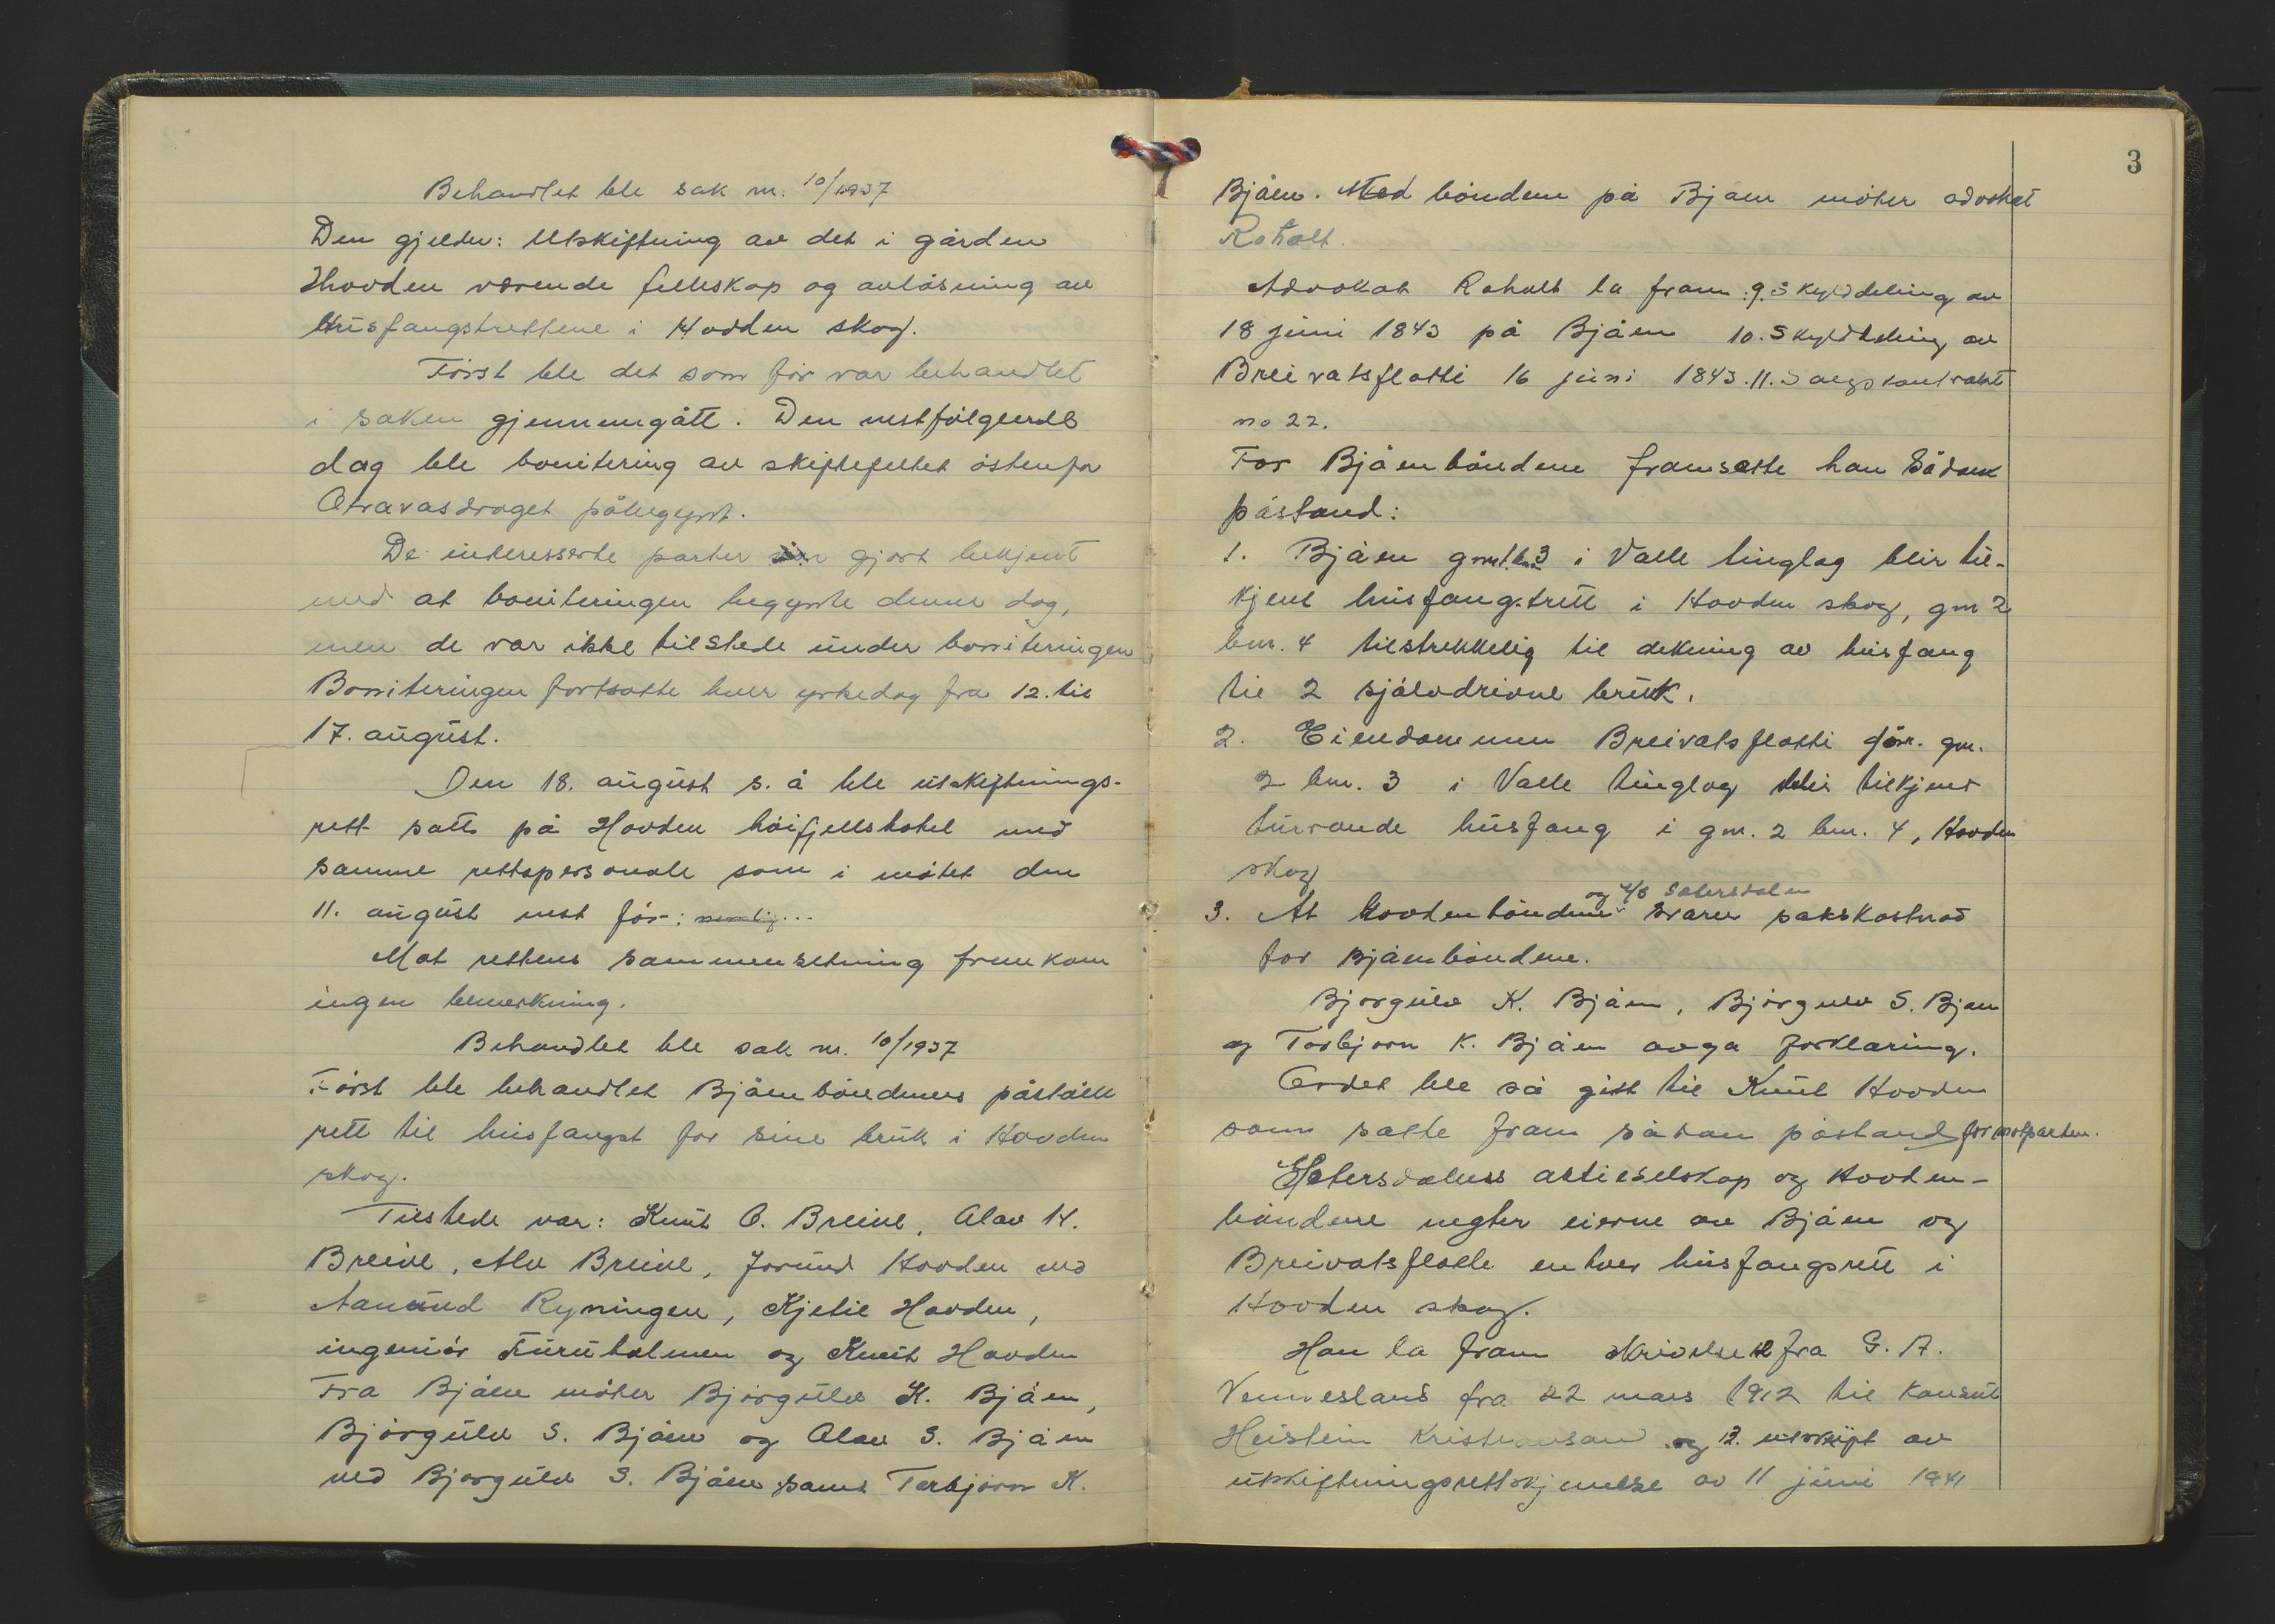 Behandlet ble sak nr. 10/1937
Den gjelder: Utskiftning av det i gården
Hovden værende felleskap og avløsning av
Husfangstrettene i Hovden skog.
Først ble det som før var behandlet
i saken gjennemgått. Den nestfølgende
dag ble bonitering av skiftefeltet østenfor
Otravasdraget påbegynt.
De interesserte parter var gjort bekjent
med at boniteringen begynte denne dag,
men de var ikke tilstede under boniteringen
Boniteringen fortsatte hver yrkedag fra 12. til
17. august.
Den 18. august s. å ble utskiftnings-
rett satt på Hovden høifjellshotel med
samme rettspersonale som i møtet den
11. august nest før: nemlig...
Mot rettens sammensetning fremkom
ingen bemerkning.
Behandlet ble sak nr. 10/1937
Først ble behandlet Bjåenbøndenes påståtte
rett til husfangst for sine bruk i Hovden
skog.
Tilstede var: Knut O. Breive, Olav H.
Breive, Alv Breive, Jorund Hovden ved
Aanund Ryningen, Kjetil Hovden,
ingeniør Furuholmen og Knut Hovden
Fra Bjåen møter Bjørgulv K. Bjåen,
Bjørgulv S. Bjåen og Olav S. Bjåen
ved Bjørgulv S. Bjåen samt Torbjørn K.
3
Bjåen. Med bøndene på Bjåen møter advokat
Roholt.
Advokat Roholt la fram: 9. Skylddeling av
18 juni 1843 på Bjåen 10. Skylddeling av
Breivatsflotti 16 juni 1843. 11. Salgskontrakt
no 22.
For Bjåenbøndene framsatte han sådan
påstand:
1. Bjåen gnr. 1 bnr. 3 i Valle tinglag blir til-
kjent husfangstrett i Hovden skog, gnr 2
bnr. 4 tilstrekkelig til dekning av husfang
til 2 sjølvdrivne bruk.
2. Eiendommen Breivatsflotti gnr.
2 bnr. 3 i Valle tinglag blir tilkjent
turvande husfang i gnr. 2 bnr. 4, Hovden
skog
3. At Hovdenbøndene og A/S Setersdalen svarer sakskostnad
for Bjåenbøndene.
Bjørgulv K. Bjåen, Bjørgulv S. Bjåen
og Torbjørn K. Bjåen avga forklaring.
Ordet ble så gitt til Knut Hovden
som satte fram sådan påstand for motparten.
Setersdalens aktieselskap og Hovden-
bøndene negter eierne av Bjåen og
Breivatsflotte enhver husfangsrett i
Hovden skog.
Han la fram skrivelse 12 fra G. A.
Vennesland fra 22 mars 1912 til konsul
Heistein Kristiansand og 13. utskrift av
utskiftningsrettskjennelse av 11 juni 1941